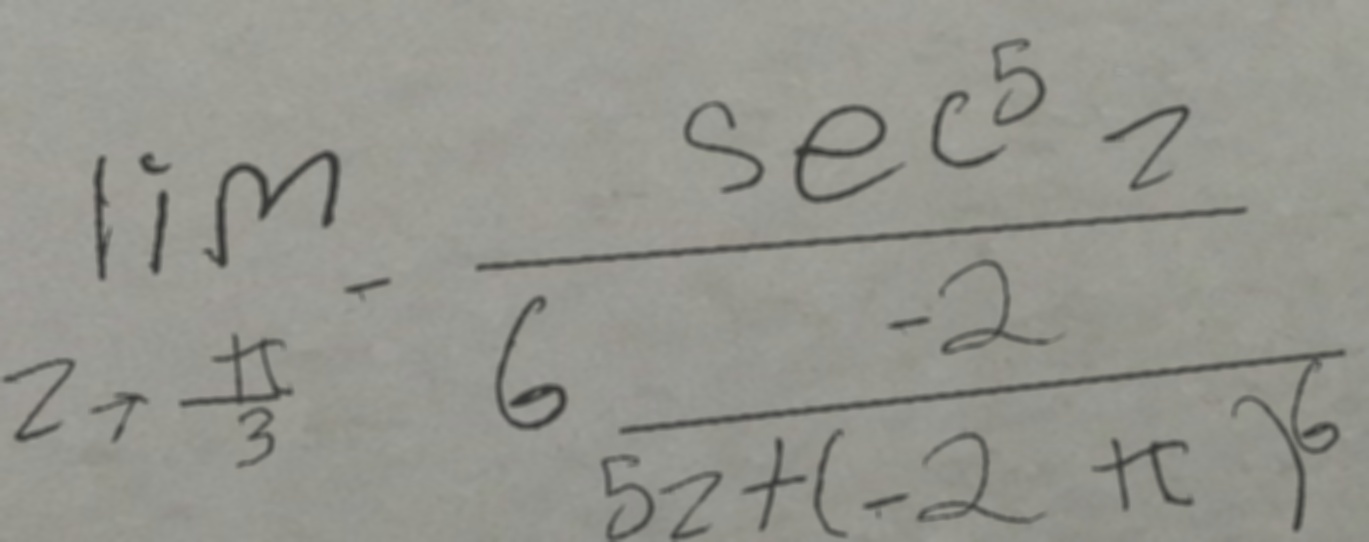 \lim_{z \to \frac{\pi}{3}} - \frac{\sec^5 z}{6 \frac{-2}{5z + (-2\pi)^6}}